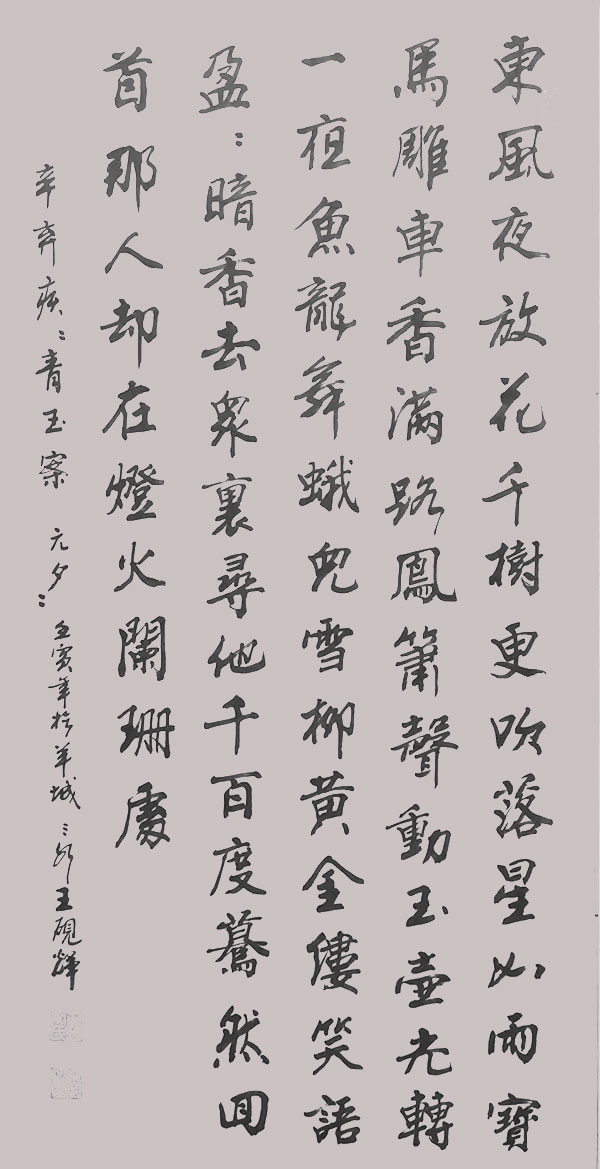 東風夜放花千樹更吹落星如雨寶
馬雕車香滿路鳳簫聲動玉壺光轉
一夜魚龍舞蛾兒雪柳黄金縷笑語
盈：暗香去眾裏尋他千百度驀然回
首那人却在燈火闌珊處
辛弃疾：青玉案 元夕：壬寅年於羊城 王硯輝